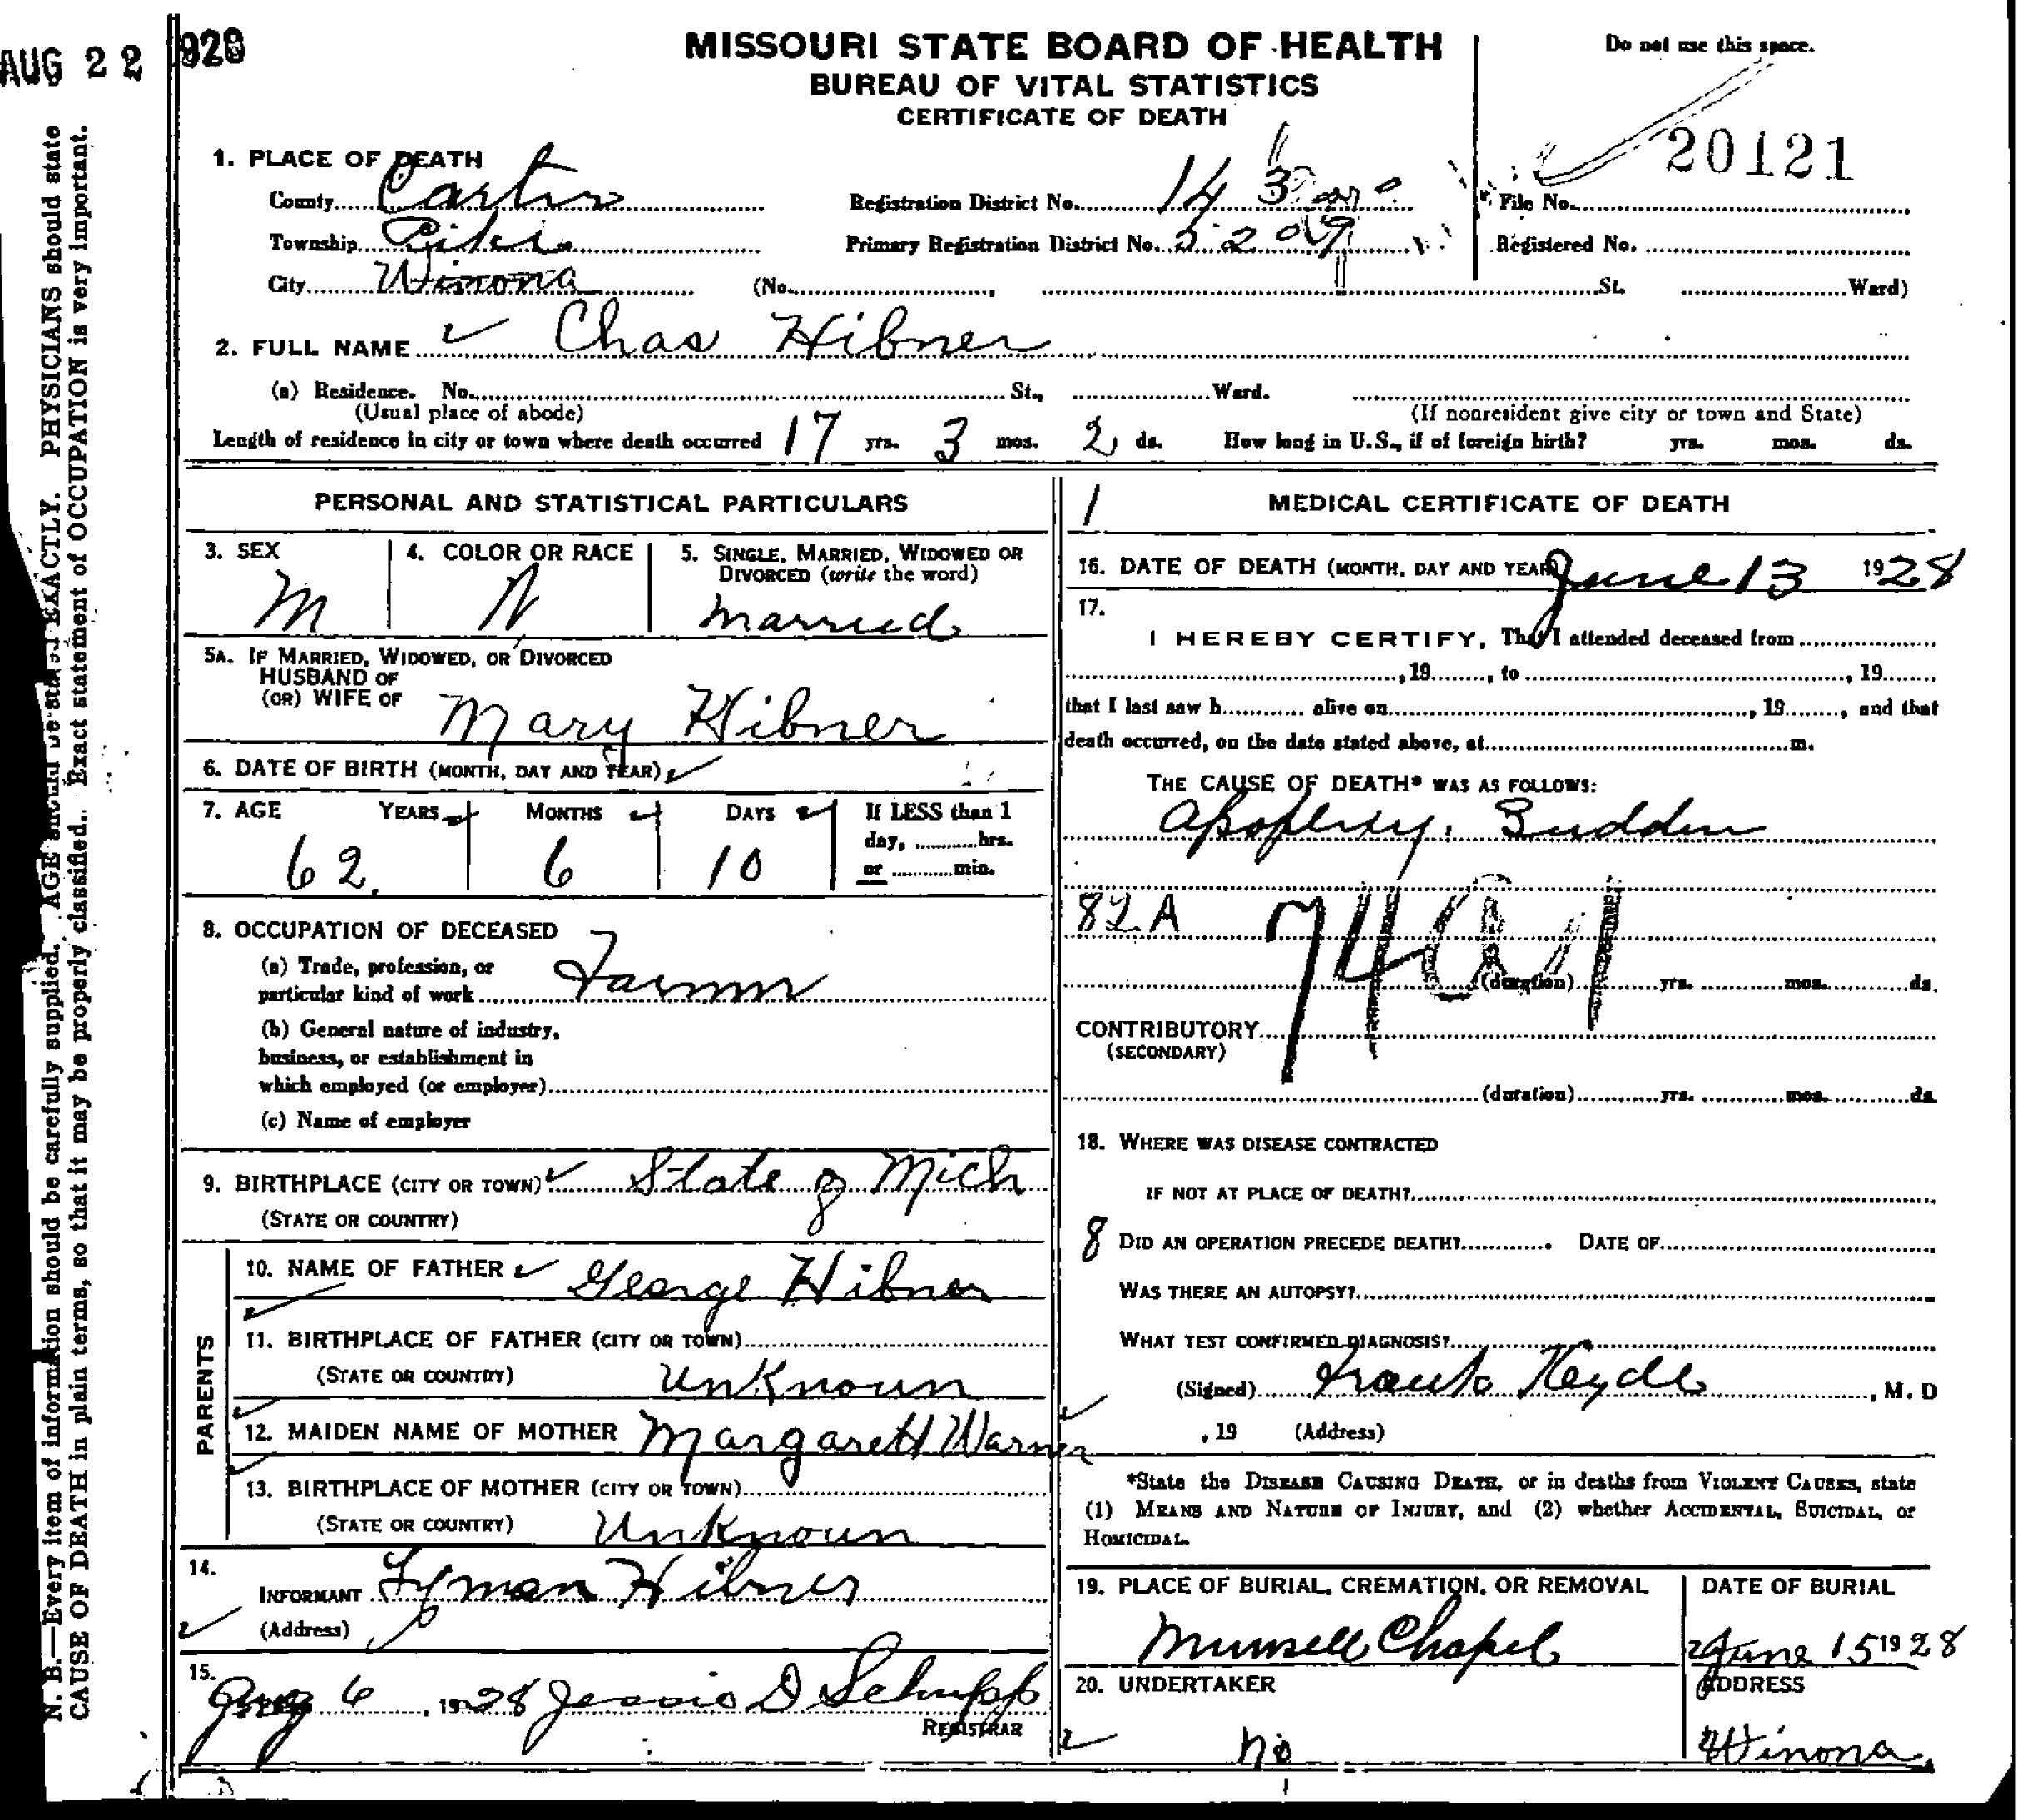 AUG 22 1928
MISSOURI STATE BOARD OF HEALTH
BUREAU OF VITAL STATISTICS
CERTIFICATE OF DEATH
Do not use this space.
20121
1. PLACE OF DEATH
County Carter Registration District No. 143 File No.
Township Primary Registration District No. 5209 Registered No.
City Winona (No. , St. Ward)
2. FULL NAME Chas Hibner
(a) Residence. No. St., Ward.
(Usual place of abode) (If nonresident give city or town and State)
Length of residence in city or town where death occurred 17 yrs. 3 mos. 2 ds. How long in U.S., if of foreign birth? yrs. mos. ds.
PERSONAL AND STATISTICAL PARTICULARS
3. SEX 4. COLOR OR RACE 5. SINGLE, MARRIED, WIDOWED OR
DIVORCED (write the word)
M W married
5A. IF MARRIED, WIDOWED, OR DIVORCED
HUSBAND OF
(OR) WIFE OF Mary Hibner
6. DATE OF BIRTH (MONTH, DAY AND YEAR)
7. AGE YEARS MONTHS DAYS If LESS than 1
day, hrs.
62 6 10 or min.
8. OCCUPATION OF DECEASED
(a) Trade, profession, or
particular kind of work Farmer
(b) General nature of industry,
business, or establishment in
which employed (or employer)
(c) Name of employer
9. BIRTHPLACE (CITY OR TOWN) State of Mich
(STATE OR COUNTRY)
PARENTS
10. NAME OF FATHER George Hibner
11. BIRTHPLACE OF FATHER (CITY OR TOWN)
(STATE OR COUNTRY) Unknoun
12. MAIDEN NAME OF MOTHER Margarett Warner
13. BIRTHPLACE OF MOTHER (CITY OR TOWN)
(STATE OR COUNTRY) Unknoun
14.
INFORMANT Lyman Hibner
(Address)
15.
Aug 6, 1928 Jessie D Schupp
REGISTRAR
1 MEDICAL CERTIFICATE OF DEATH
16. DATE OF DEATH (MONTH, DAY AND YEAR) June 13 1928
17.
I HEREBY CERTIFY, That I attended deceased from
, 19 , to , 19
that I last saw h alive on , 19 , and that
death occurred, on the date stated above, at m.
THE CAUSE OF DEATH* WAS AS FOLLOWS:
Apoplexy, Sudden
82A 74a1
(duration) yrs. mos. ds.
CONTRIBUTORY
(SECONDARY)
(duration) yrs. mos. ds.
18. WHERE WAS DISEASE CONTRACTED
IF NOT AT PLACE OF DEATH?
8 DID AN OPERATION PRECEDE DEATH? DATE OF
WAS THERE AN AUTOPSY?
WHAT TEST CONFIRMED DIAGNOSIS?
(Signed) Frank Hyde, M. D
, 19 (Address)
*State the DISEASE CAUSING DEATH, or in deaths from VIOLENT CAUSES, state
(1) MEANS AND NATURE OF INJURY, and (2) whether ACCIDENTAL, SUICIDAL, or
HOMICIDAL.
19. PLACE OF BURIAL, CREMATION, OR REMOVAL DATE OF BURIAL
Munsell Chapel June 15 1928
20. UNDERTAKER ADDRESS
no Winona
N. B.—Every item of information should be carefully supplied. AGE should be stated EXACTLY. PHYSICIANS should state
CAUSE OF DEATH in plain terms, so that it may be properly classified. Exact statement of OCCUPATION is very important.